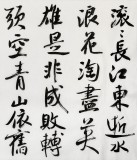 滚〻長江東逝水
浪花淘盡英
雄是非成敗轉
頭空青山依舊